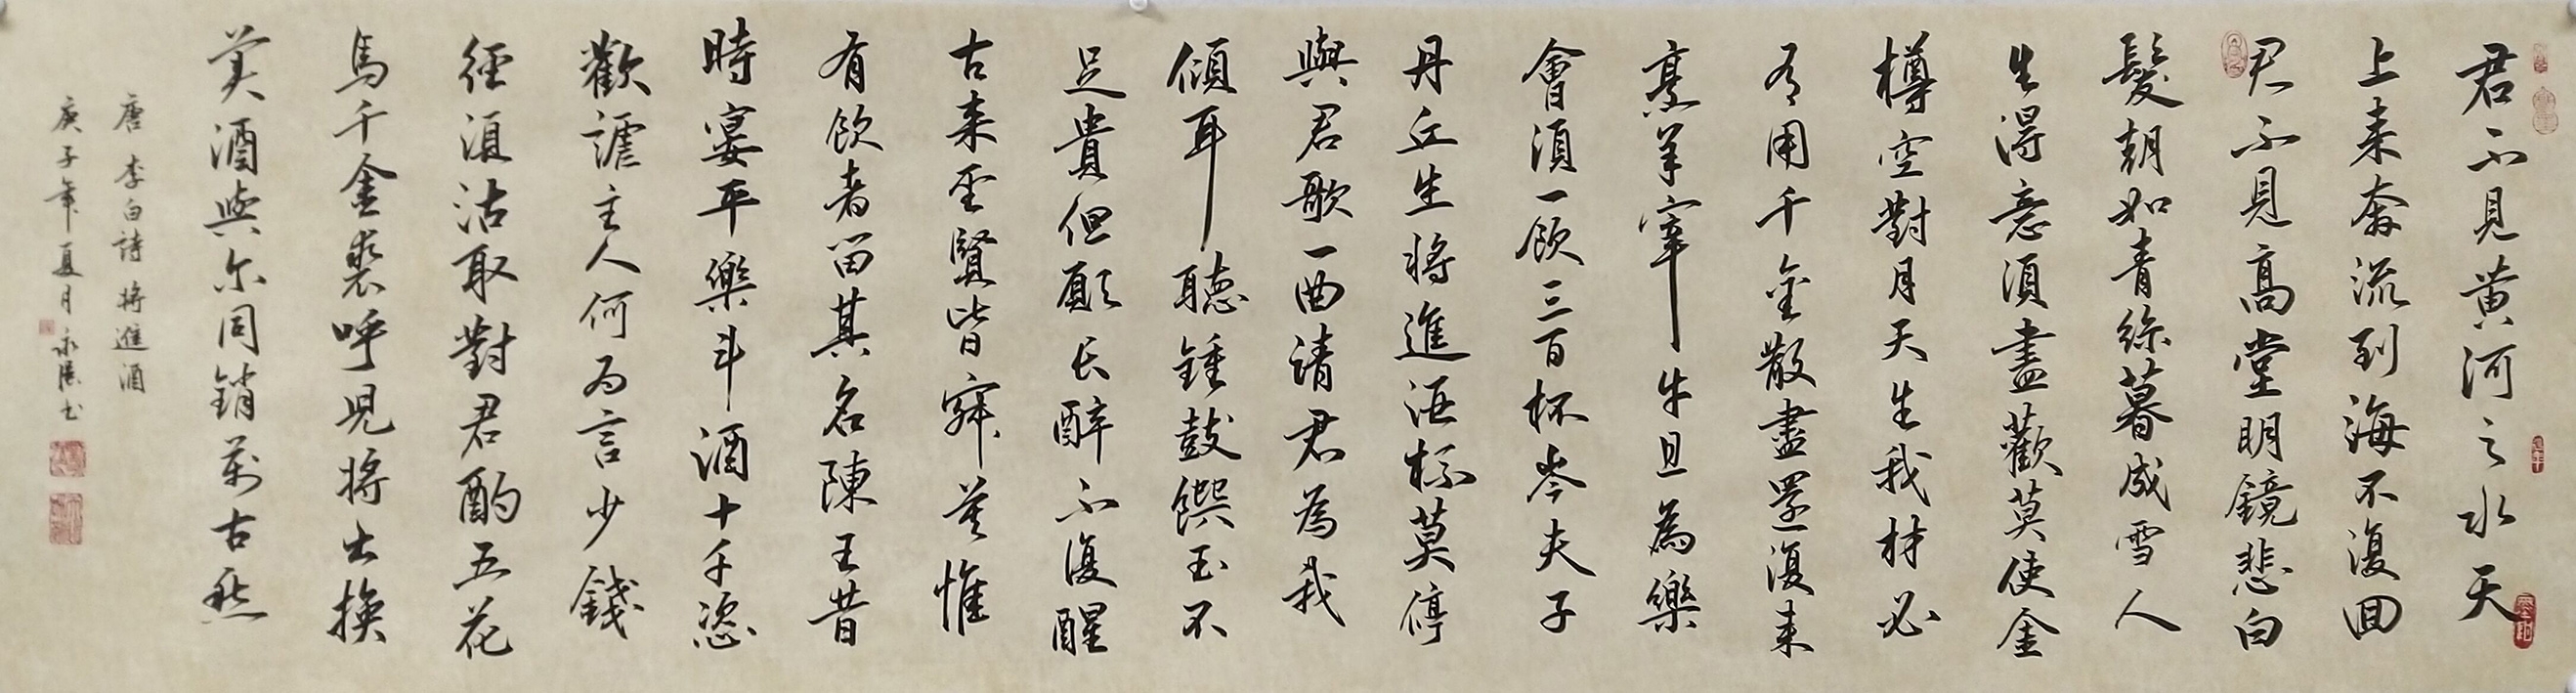 君不見黄河之水天
上来奔流到海不復回
君不見高堂明鏡悲白
髮朝如青絲暮成雪人
生得意須盡歡莫使金
樽空對月天生我材必
有用千金散盡還復来
烹羊宰牛且為樂
會須一飲三百杯岑夫子
丹丘生将進酒杯莫停
與君歌一曲請君為我
傾耳聽鍾鼓饌玉不
足貴但願长醉不復醒
古来聖賢皆寂寞惟
有飲者留其名陳王昔
時宴平樂斗酒十千恣
歡謔主人何为言少錢
徑須沽取對君酌五花
馬千金裘呼児将出換
美酒與尔同銷萬古愁
唐 李白詩 将進酒
庚子年夏月永书